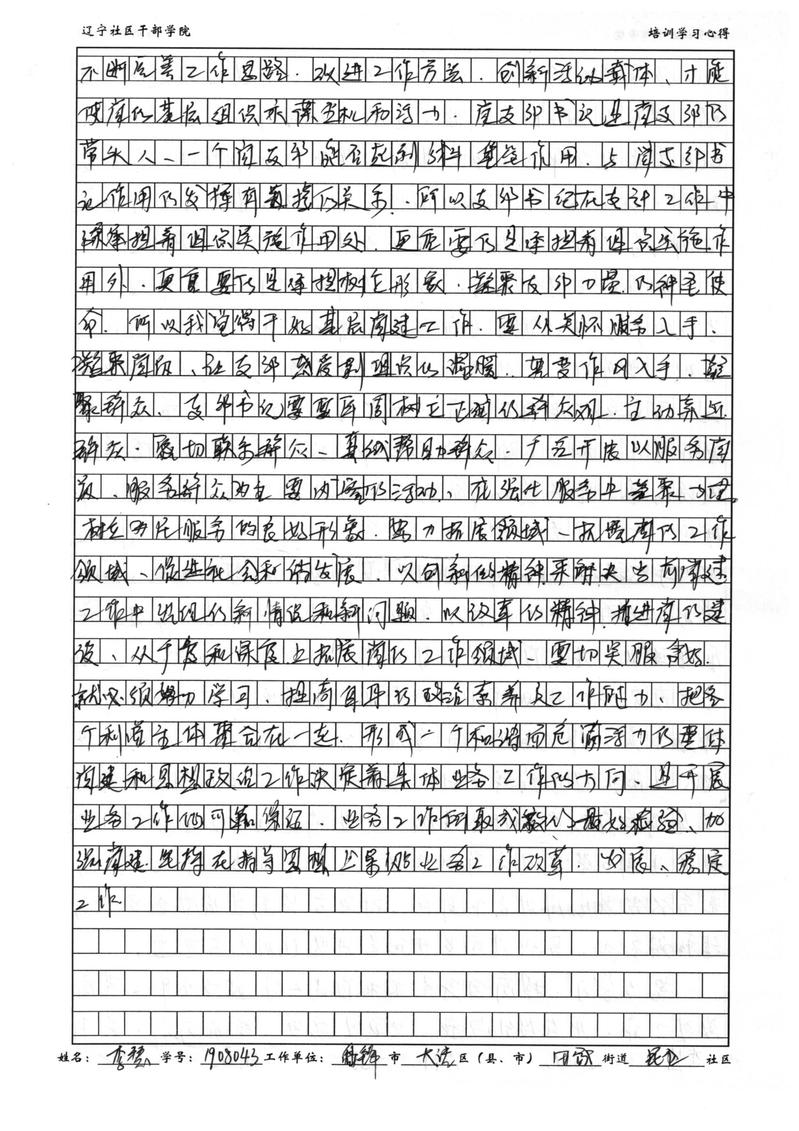 辽宁社区干部学院 培训学习心得
不断完善工作思路、改进工作方法、创新活动载体、才能
使党的基层组织永葆生机和活力。党支部书记是党支部的
带头人、一个党支部能否起到战斗堡垒作用、与党支部书
记作用的发挥有直接的关系、所以支部书记在党建工作中
承担着组织实施作用处、更重要的是承担着组织实施作
用外、更重要的是承担树立形象、凝聚支部力量的神圣使
命、所以我觉得干好基层党建工作、要从关怀服务入手、
凝聚党员、让支部感受到组织的温暖、转变作风入手、凝
聚群众、支部书记要牢固树立正确的群众观、主动亲近
群众、密切联系群众、真诚帮助群众、广泛开展以服务党
员、服务群众为主要内容的活动、在强化服务中凝聚力量
树立为民服务的良好形象、努力拓展领域、拓展党的工作
领域、促进社会和谐发展、以创新的精神来解决当前党建
工作中出现的新情况和新问题、以改革的精神推进党的建
设、从广度和深度上拓展党的工作领域、要切实服务好、
就必须努力学习、提高自身的政治素养及工作能力、把各
个利益主体聚合在一起、形成一个和谐而充满活力的整体
党建和思想政治工作决定着具体业务工作的方向、是开展
业务工作的可靠保证、业务工作的取效是最好检验、加
强党建坚持在指导思想上紧贴业务工作改革、发展、稳定
工作
姓名： 学号：1908043 工作单位： 市 区（县、市） 街道 社区